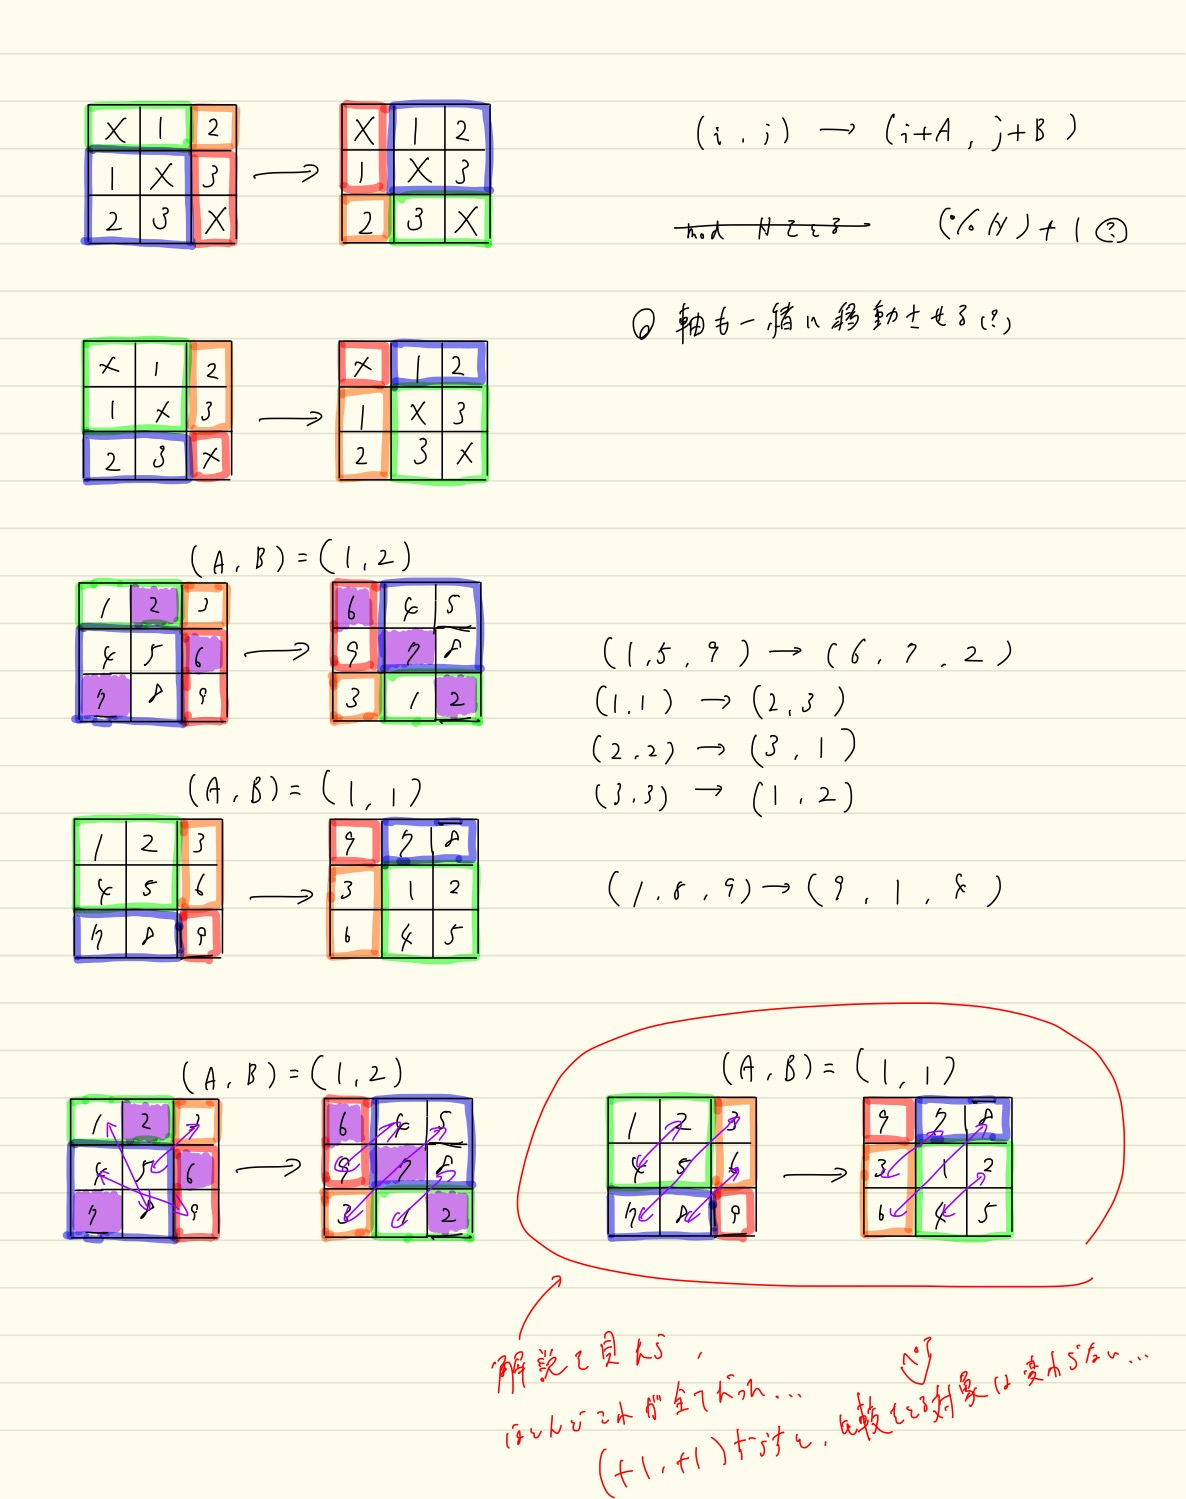 X 1 2
1 X 3
2 3 X
X 1 2
1 X 3
2 3 X
(i, j) → (i+A, j+B)
mod Nとする
(% N) + 1 ?
軸も一緒に移動させる(?)
X 1 2
1 X 3
2 3 X
X 1 2
1 X 3
2 3 X
(A, B) = (1, 2)
1 2 3
4 5 6
7 8 9
6 4 5
9 7 8
3 1 2
(1, 5, 9) → (6, 7, 2)
(1, 1) → (2, 3)
(2, 2) → (3, 1)
(3, 3) → (1, 2)
(A, B) = (1, 1)
1 2 3
4 5 6
7 8 9
9 7 8
3 1 2
6 4 5
(1, 8, 9) → (9, 1, 4)
(A, B) = (1, 2)
1 2 3
4 5 6
7 8 9
6 4 5
9 7 8
3 1 2
(A, B) = (1, 1)
1 2 3
4 5 6
7 8 9
9 7 8
3 1 2
6 4 5
解説を見たら,
ほとんどこれが全てだった...
(+1, +1)ずらすと, 比較する対象は変わらない...